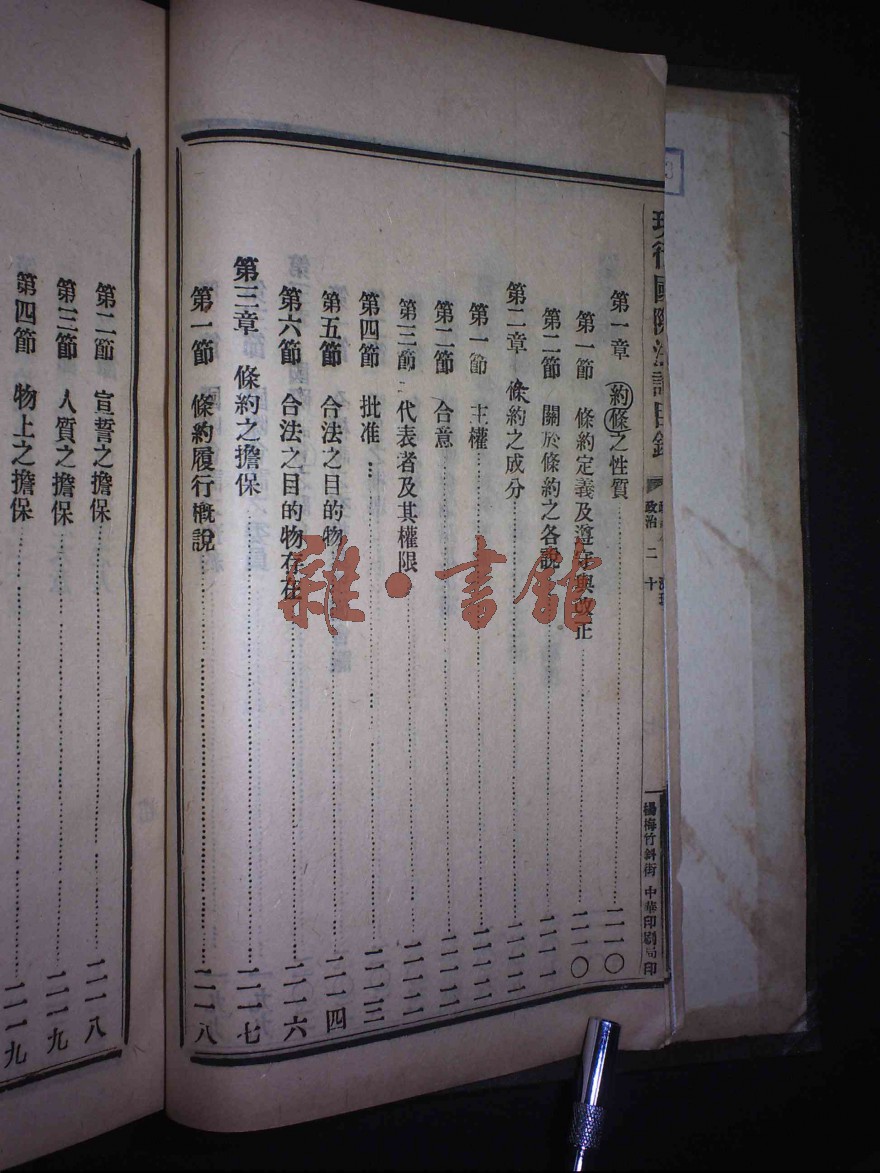 國際法
政治 二 十
楊梅竹斜街 中華印刷局印
第一章 約條之性質………二一〇
第一節 條約定義及遵守與改正………二一〇
第二節 關於條約之各說………二一一
第二章 條約之成分………二一二
第一節 主權………二一二
第二節 合意………二一二
第三節 代表者及其權限………二一二
第四節 批准………二一三
第五節 合法之目的物………二一四
第六節 合法之目的物存在………二一六
第三章 條約之擔保………二一七
第一節 條約履行概說………二一八
第二節 宣誓之擔保………二一八
第三節 人質之擔保………二一九
第四節 物上之擔保………二一九
雜·書館